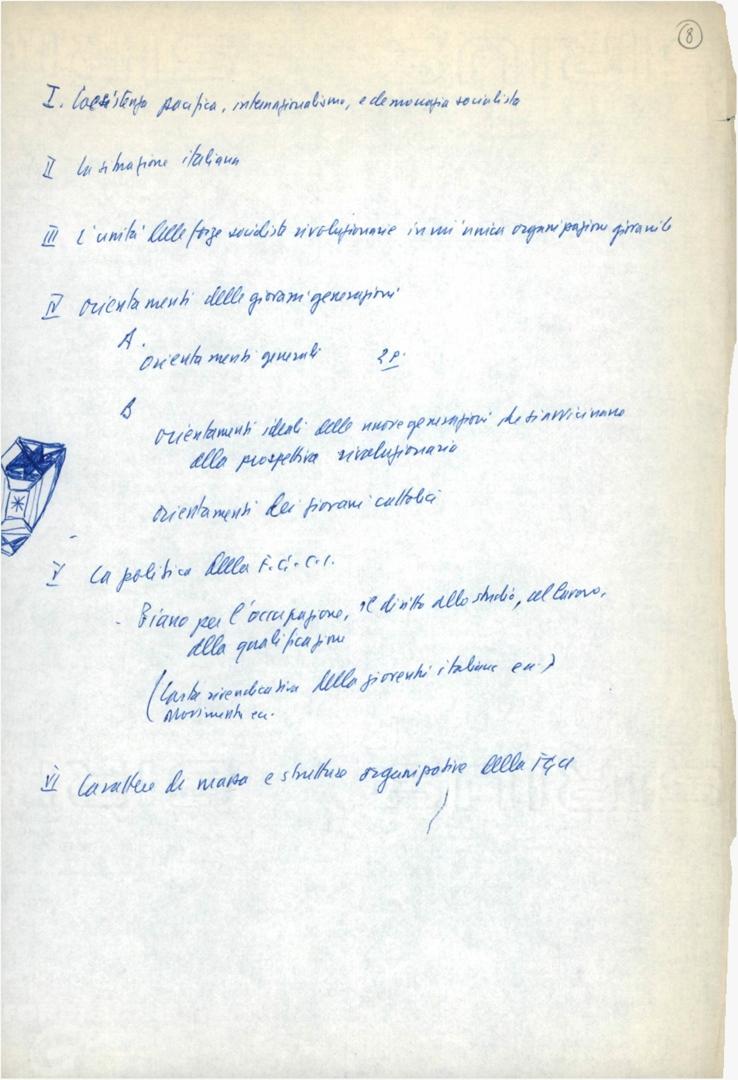 8
I. Coesistenza pacifica, internazionalismo, e democrazia socialista
II La situazione italiana
III L'unità delle forze socialiste rivoluzionarie in un'unica organizzazione giovanile
IV Orientamenti delle giovani generazioni
A.
Orientamenti generali 2 p.
B
Orientamenti ideali delle nuove generazioni che si avvicinano
alla prospettiva rivoluzionaria
Orientamenti dei giovani cattolici
V La politica della F.G.C.I.
- Piano per l'occupazione, il diritto allo studio, al lavoro,
alla qualificazione
(Carta rivendicativa della gioventù italiana ecc.)
Movimento ecc.
VI Carattere di massa e strutture organizzative della FGCI